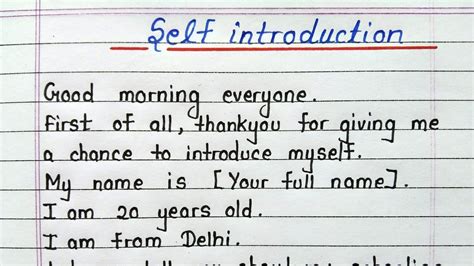 Self introduction
Good morning everyone.
First of all, thankyou for giving me
a chance to introduce myself.
My name is [Your full name].
I am 20 years old.
I am from Delhi.